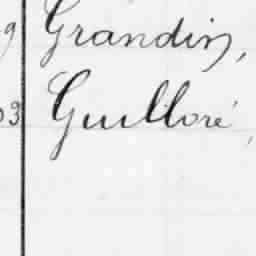 9 Grandin,
3 Guilloré,